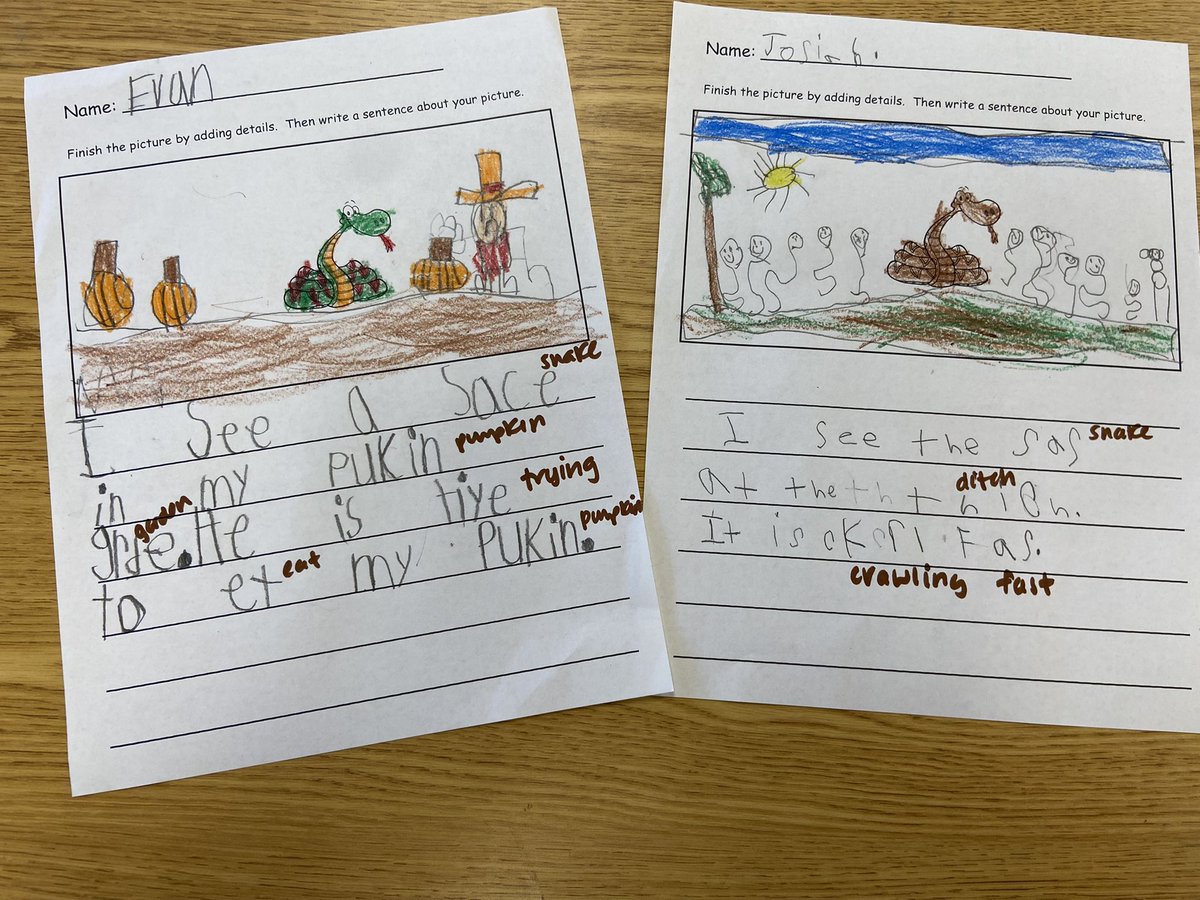 Name: Evan
Finish the picture by adding details. Then write a sentence about your picture.
I see a sace snake
in my pukin pumpkin
grde. garden He is tiye trying
to et eat my pukin. pumpkin
Name: Josiah.
Finish the picture by adding details. Then write a sentence about your picture.
I see the sas snake
at the ditch
It is fas.
crawling fast